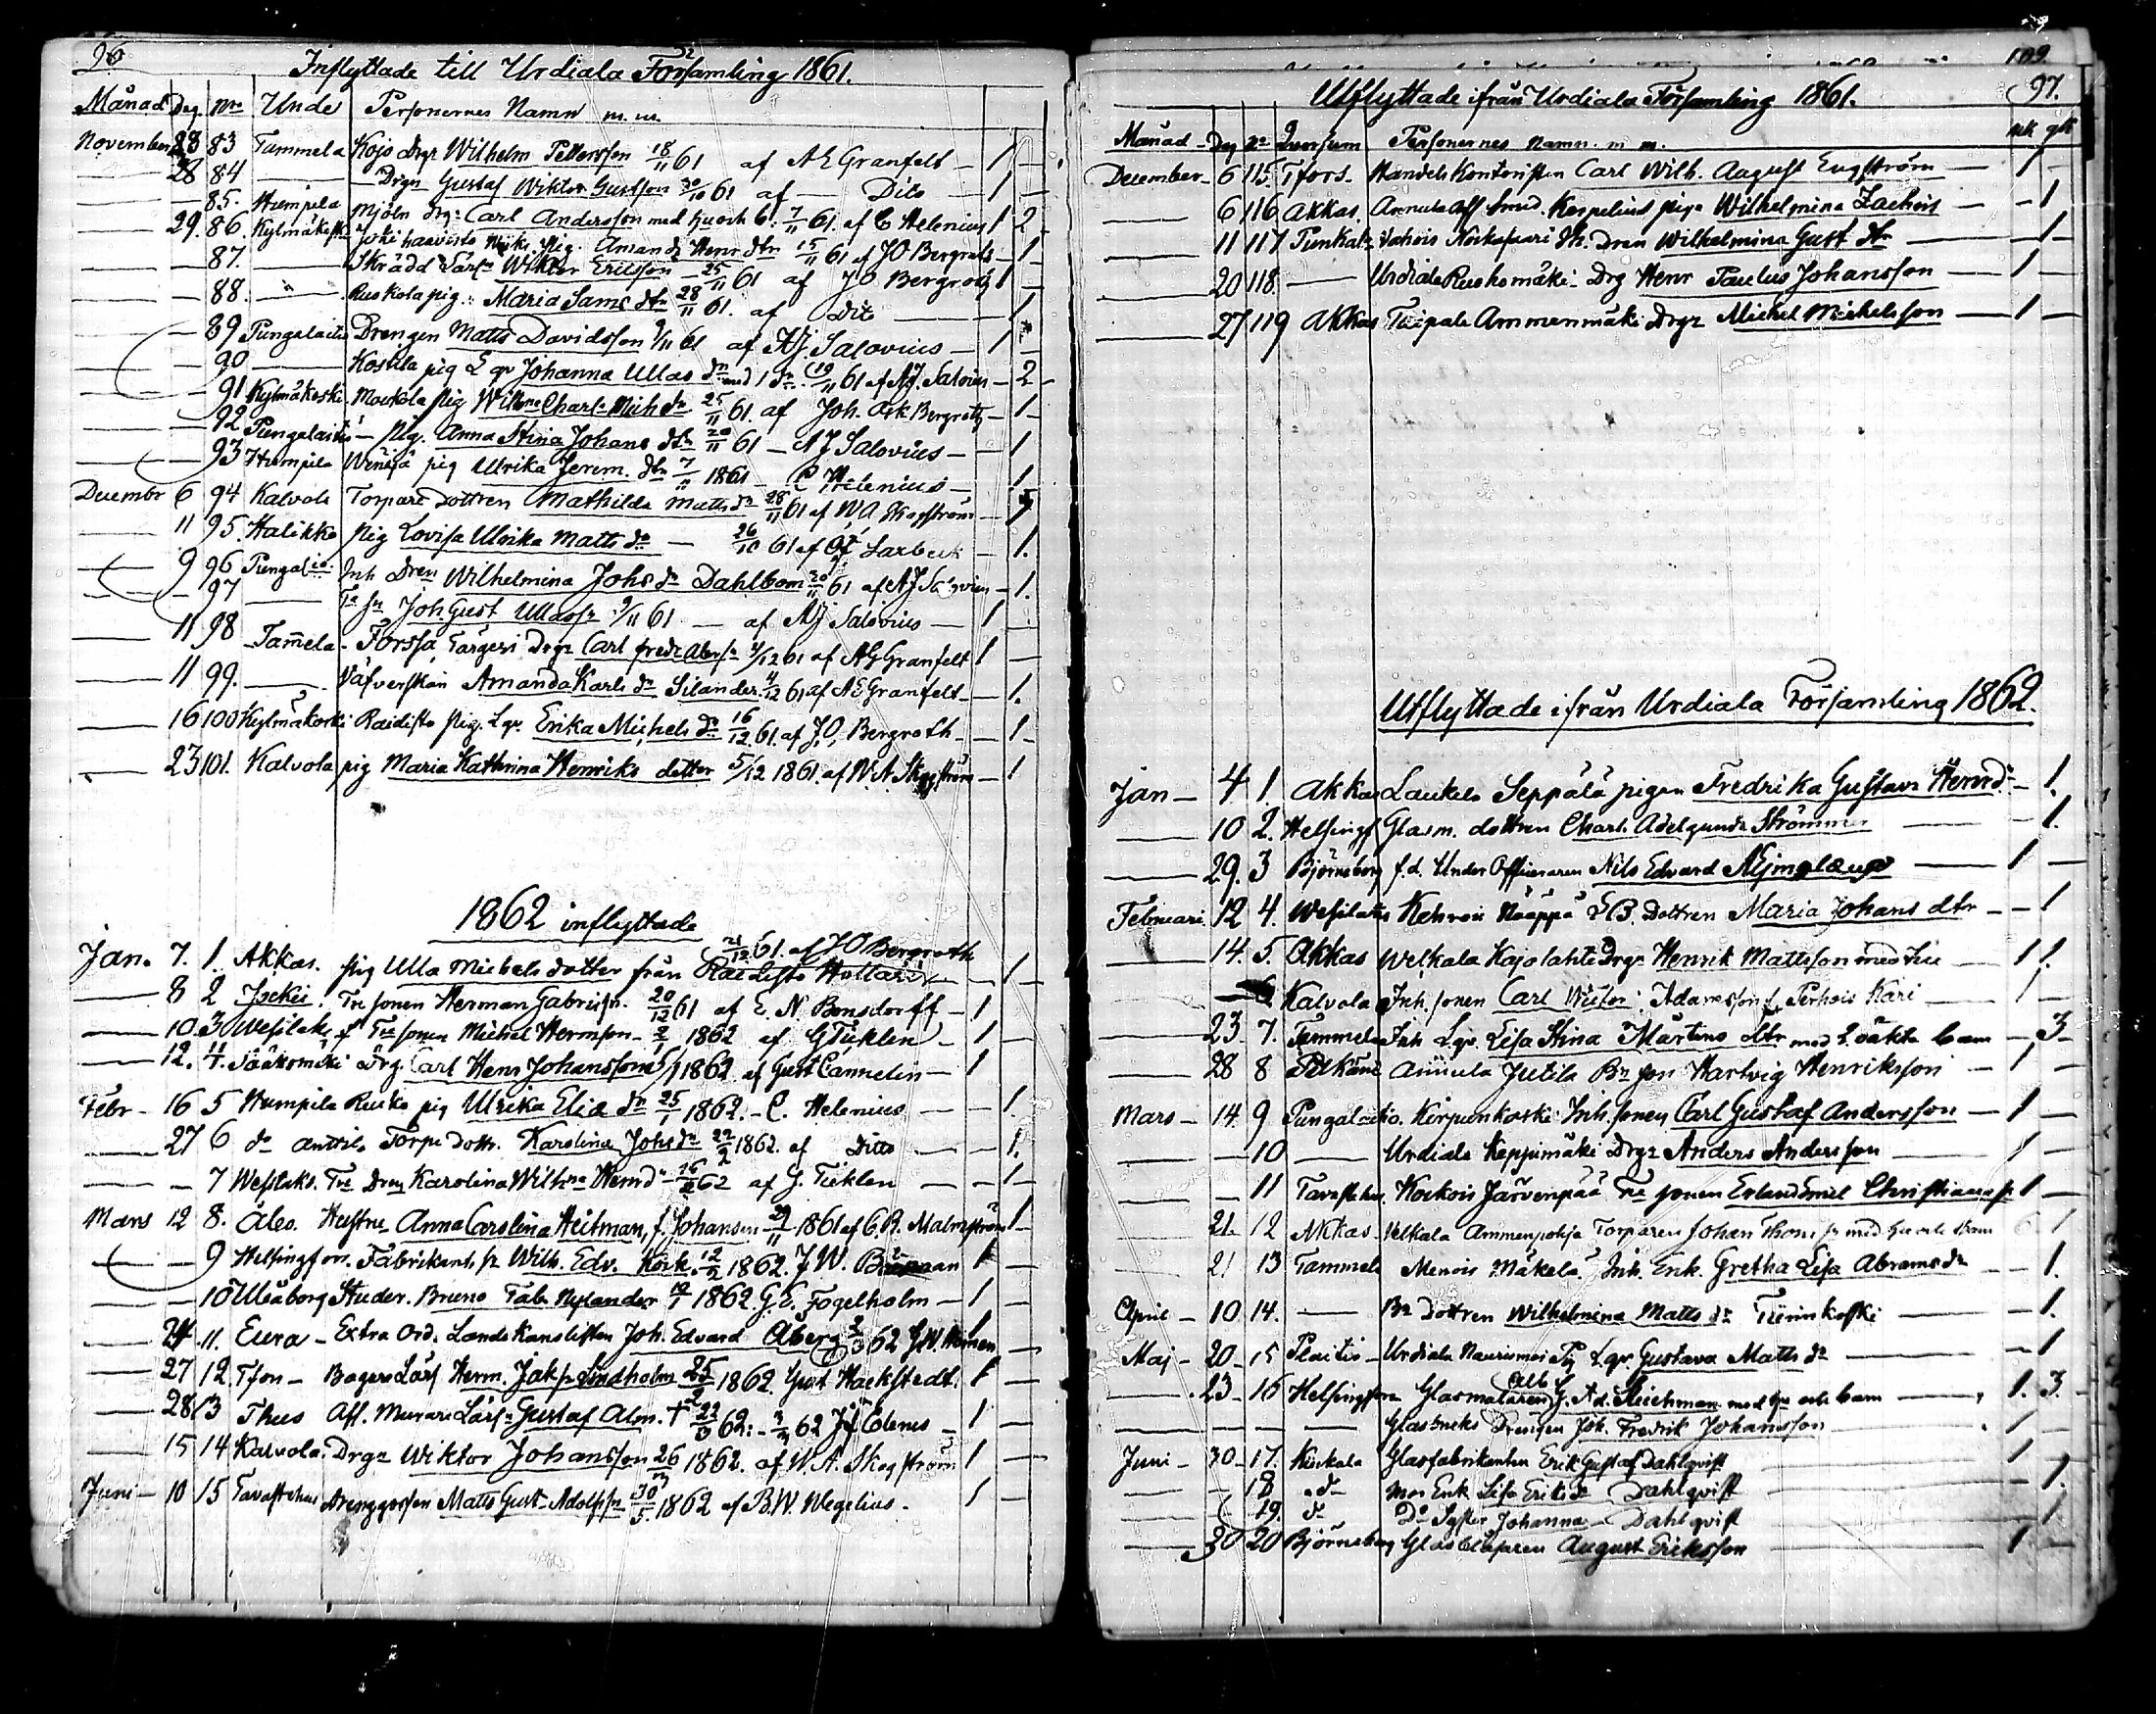 96
Inflyttade till Urdiala Församling 1861.
Månad Dag Nro Unde Personernes Namn m.m.
November 28 83 Tammela Kojo Drgn Wilhelm Pettersson 18/11 61 af A E Granfelt — 1 —
28 84 — Drgn Gustaf Wiktor Gustfson 30/10 61 af — Dito — 1
— 85. Humpila Mjöln drg: Carl Andersson med hu och 6. 7/11 61. af C Helenius 1 2
29. 86. Kylmäkoski pig. Amanda Henr dtr 15/11 61 af J O Bergroth — 1 —
— 87. — Skrädd Lärl Wiktor Ericsson 25/11 61 af J O Bergroth 1
— 88. — Ruokola pig. Maria Sams dtr 28/11 61. af Dito — 1
— 89 Pungalaitio Drengen Matts Davidsson 9/11 61 af A J Salovius — 1
— 90 — Kostila pig Lqv Johanna Ullas dr med 1 dr. 19/11 61 af A J. Salovius — 2 —
— 91 Kylmäkoski Mockola pig Wilhna Charl. Mich dr 25/11 61. af Joh. Osk Bergroth — 1 —
— 92 Pungalaitio — pig. Anna Stina Johans dtr 20/11 61 — A J Salovius — 1
— 93 Humpila Wenejä pig Ulrika Jerem. dtr 7/11 1861 C Helenius — 1
Decembr 6 94 Kalvola Torpare dottren Mathilda Matts dr 28/11 61 af W A Skogström — 1
11 95. Halikko pig Lovisa Ulrika Matts dr — 26/10 61 af Sarbeck — 1.
9 96 Pungal:io. Inh Dren Wilhelmina Johs dr Dahlbom 20/11 61 af A J Salovius — 1.
— 97 — Tr sn Joh. Gust Ullass. 9/11 61 — af A J Salovius — 1
11 98 Tam̄ela Forssa, Färgeri Drgn Carl Fredr Abrs 4/12 61 af A G Granfelt 1 —
11 99. — Väfverskan Amanda Karls dr Silander. 4/12 61 af A E Granfelt — 1.
16 100 Kylmäkoski Raidisto pig. Lqv. Erika Michels dr 16/12 61. af J. O, Bergroth — 1 —
23 101. Kalvola pig Maria Kathrina Henriks dotter 5/12 1861. af W. A. Skogström — 1
1862 inflyttade
Jan. 7. 1. Akkas. pig Ulla Michels dotter från Raidisto Huttari 21/12 61. af J O Bergroth — 1 —
8 2 Jockis. Tr sonen Herman Gabriels. 20/12 61 af E. N. Bonsdorff — 1
10. 3 Wesilaks Tr sonen Michel Hermson — 2/1 1862 af G Ticklen — 1
12. 4. Jääkomäki Drg. Carl Henr Johansson 5/1 1862 af Gust Cannelin — 1
Febr — 16 5 Humpila Ruiko pig Ulrika Elia dr 25/1 1862. — C. Helenius — 1.
27 6 do Anttila Torpe dottr. Karolina Johs dr 22/2 1862. af Ditto — 1.
— 7 Wesilaks. Tr Dren Karolina Wilhna Henr d 16/2 62 af J. Ticklen — 1
Mars 12 8. Åbo. Hustru Anna Carolina Heitman, f. Johansson 29/11 1861 af C. R. Malmström 1 —
— 9 Helsingfors. Fabrikants sr Wilh. Edv. Kock 12/2 1862. J W. 1 —
— 10 Uleåborg Studer. Bruno Fab. Nylander 18/1 1862. G. E. Fogelholm — 1 —
24 11. Eura — Extra Ord. Lands Kanslisten Joh. Edvard Åberg 62 1 —
27 12. Tfors — Bagare Lärl Herm. Jaks Lindholm 25/2 1862. Gust Hackstedt. 1 —
28 13 Thus Afl. Murare Lärl Gustaf Alm. † 62: — 62 — 1 —
15 14 Kalvola. Drgn Wiktor Johansson 26/3 1862. af W. A. Skogström 1 —
Juni — 10 15 Tavastehus Drenggossen Matts Gust Adolfs. 30/5 1862 af B. W. Wegelius. 1 —
109.
97.
Utflyttade ifrån Urdiala Församling 1861.
Månad — Dag No Quorsum Personernes Namn. m m. mk qk
December — 6 115. Tfors. Handels Kontoristen Carl Wilh. August Engström — 1 —
6 116 Akkas. Annula Smed. Kespelius piga Wilhelmina Zachris — 1
11 117 Punkal: Vahois Wilhelmina Gust dtr — 1 —
20 118. — Urdiala Ruohomäki. Drg Henr Paulus Johansson — 1 —
27 119 Akkas Taipale Ammenmäki Drgn Michel Michelsson — 1 —
Utflyttade ifrån Urdiala Församling 1862.
Jan — 4 1. Akkas Laukela Seppälä pigan Fredrika Gustava Henrdr — 1.
10 2. Helsingf Glasm. dottren Charl. Adelgunda Strömmer — 1.
29. 3 Björneborg f.d. Under Officeraren Nils Edvard — 1 —
Februari. 12 4. Wesilaks Kehroi Nääppä B. Dottren Maria Johans dtr — 1
14. 5. Akkas Welkala Kajolahti Drgn Henrik Mattsson med hu — 1 1.
— 6. Kalvola Inh. sonen Carl Wictor Adamsson f. Perhois Kari — 1 —
23 7. Tammela Inh Lqv. Lisa Stina Mårtens dtr med 2 oäkta barn — 3 —
28 8 Pelkäne Annula Jutila Bn son Hartvig Henriksson — 1 —
Mars — 14 9 Pungalaitio. Kirpunkoski Inh. sonen Carl Gustaf Andersson — 1 —
— 10 — Urdiala Keppimäki Drgn Anders Andersson — 1 —
— 11 Tavastehus Kockois Järvenpää Tr sonen Erland Emil Christiansn 1 —
21. 12 Akkas Velkala Ammenpohja Torparen Johan Thoms sn med hu och barn 6 1
21 13 Tammela Menois Mäkelä. Inh. Enk. Gretha Lisa Abrams dr — 1.
April — 10 14. — Bn dottren Wilhelmina Matts dr — 1.
Maj — 20 — 15 Plaitis — Urdiala Nauriomei Pig Lqv. Gustava Matts dr — 1
23 — 16 Helsingfors Glasmalaren G. Ad. Alb Reichman med hu och barn — 1. 3.
— Glasbruks Drengen Joh. Fredrik Johansson — 1 —
Juni — 30 — 17. Kiukala Glasfabrikanten Erik Gustaf Dahlqvist — 1 —
18 do Mor Enk Lisa Eriks dr Dahlqvist — 1.
19. do Do Syster Johanna — Dahlqvist — 1
30 20 Björneborg Glasblåsaren August Eriksson — 1 —